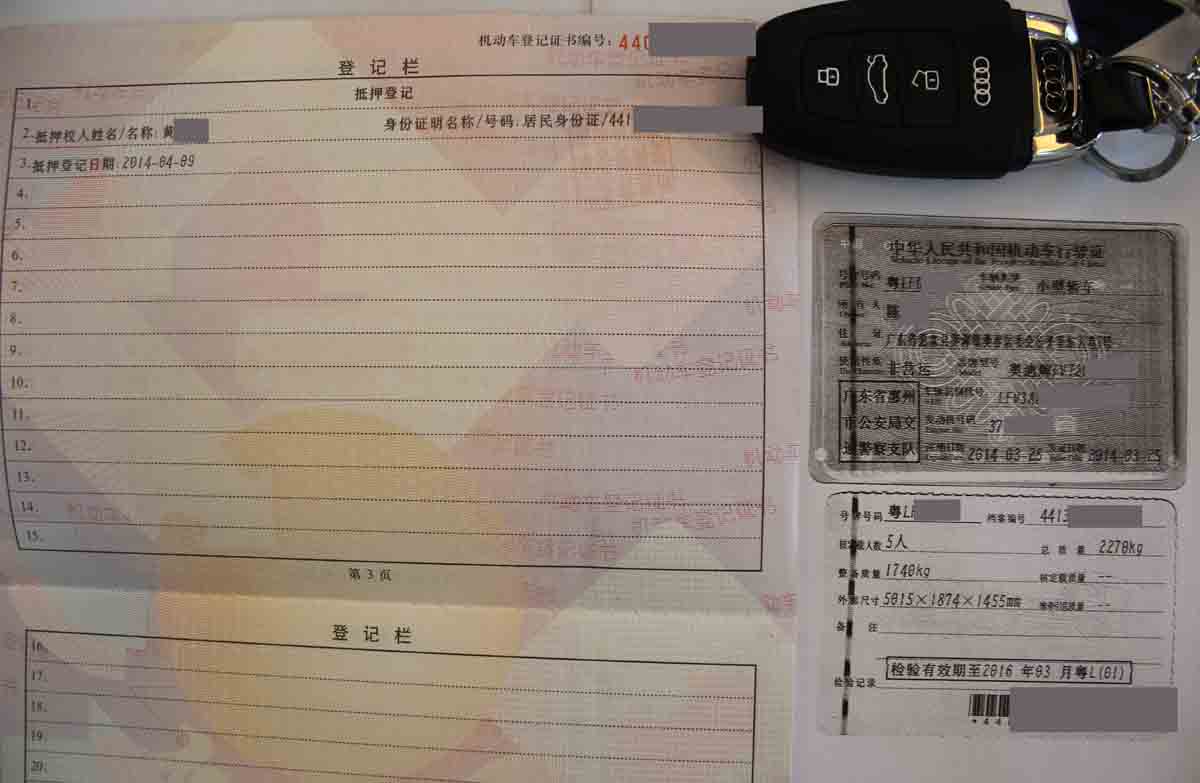 机动车登记证书编号：440
登记栏
1. 抵押登记
2. 抵押权人姓名/名称: 黄 身份证明名称/号码: 居民身份证/441
3. 抵押登记日期: 2014-04-09
4.
5.
6.
7.
8.
9.
10.
11.
12.
13.
14.
15.
第 3 页
登记栏
16.
17.
18.
19.
20.
中华人民共和国机动车行驶证
号牌号码 粤LFF 车辆类型 小型轿车
所有人 陈
住址
使用性质 非营运 品牌型号 奥迪牌
广东省惠州 车辆识别代号 LFV3A
市公安局交 发动机号码 37
通警察支队 注册日期 2014-03-25 发证日期 2014-03-25
号牌号码 粤LF 档案编号 4413
核定载人数 5人 总质量 2270kg
整备质量 1740kg 核定载质量 --
外廓尺寸 5015×1874×1455mm 准牵引总质量 --
备注
检验有效期至2016年03月粤L(01)
检验记录
*44